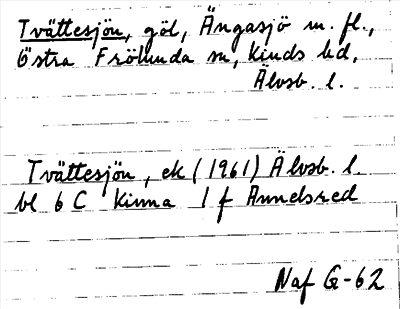 Tvättesjön, göl, Ängasjö m. fl.,
Östra Frölunda sn, Kinds hd,
Älvsb. l.
Tvättesjön, ek (1961) Älvsb. l.
bl 6 C Kinna 1 f Anndsred
Naf G-62